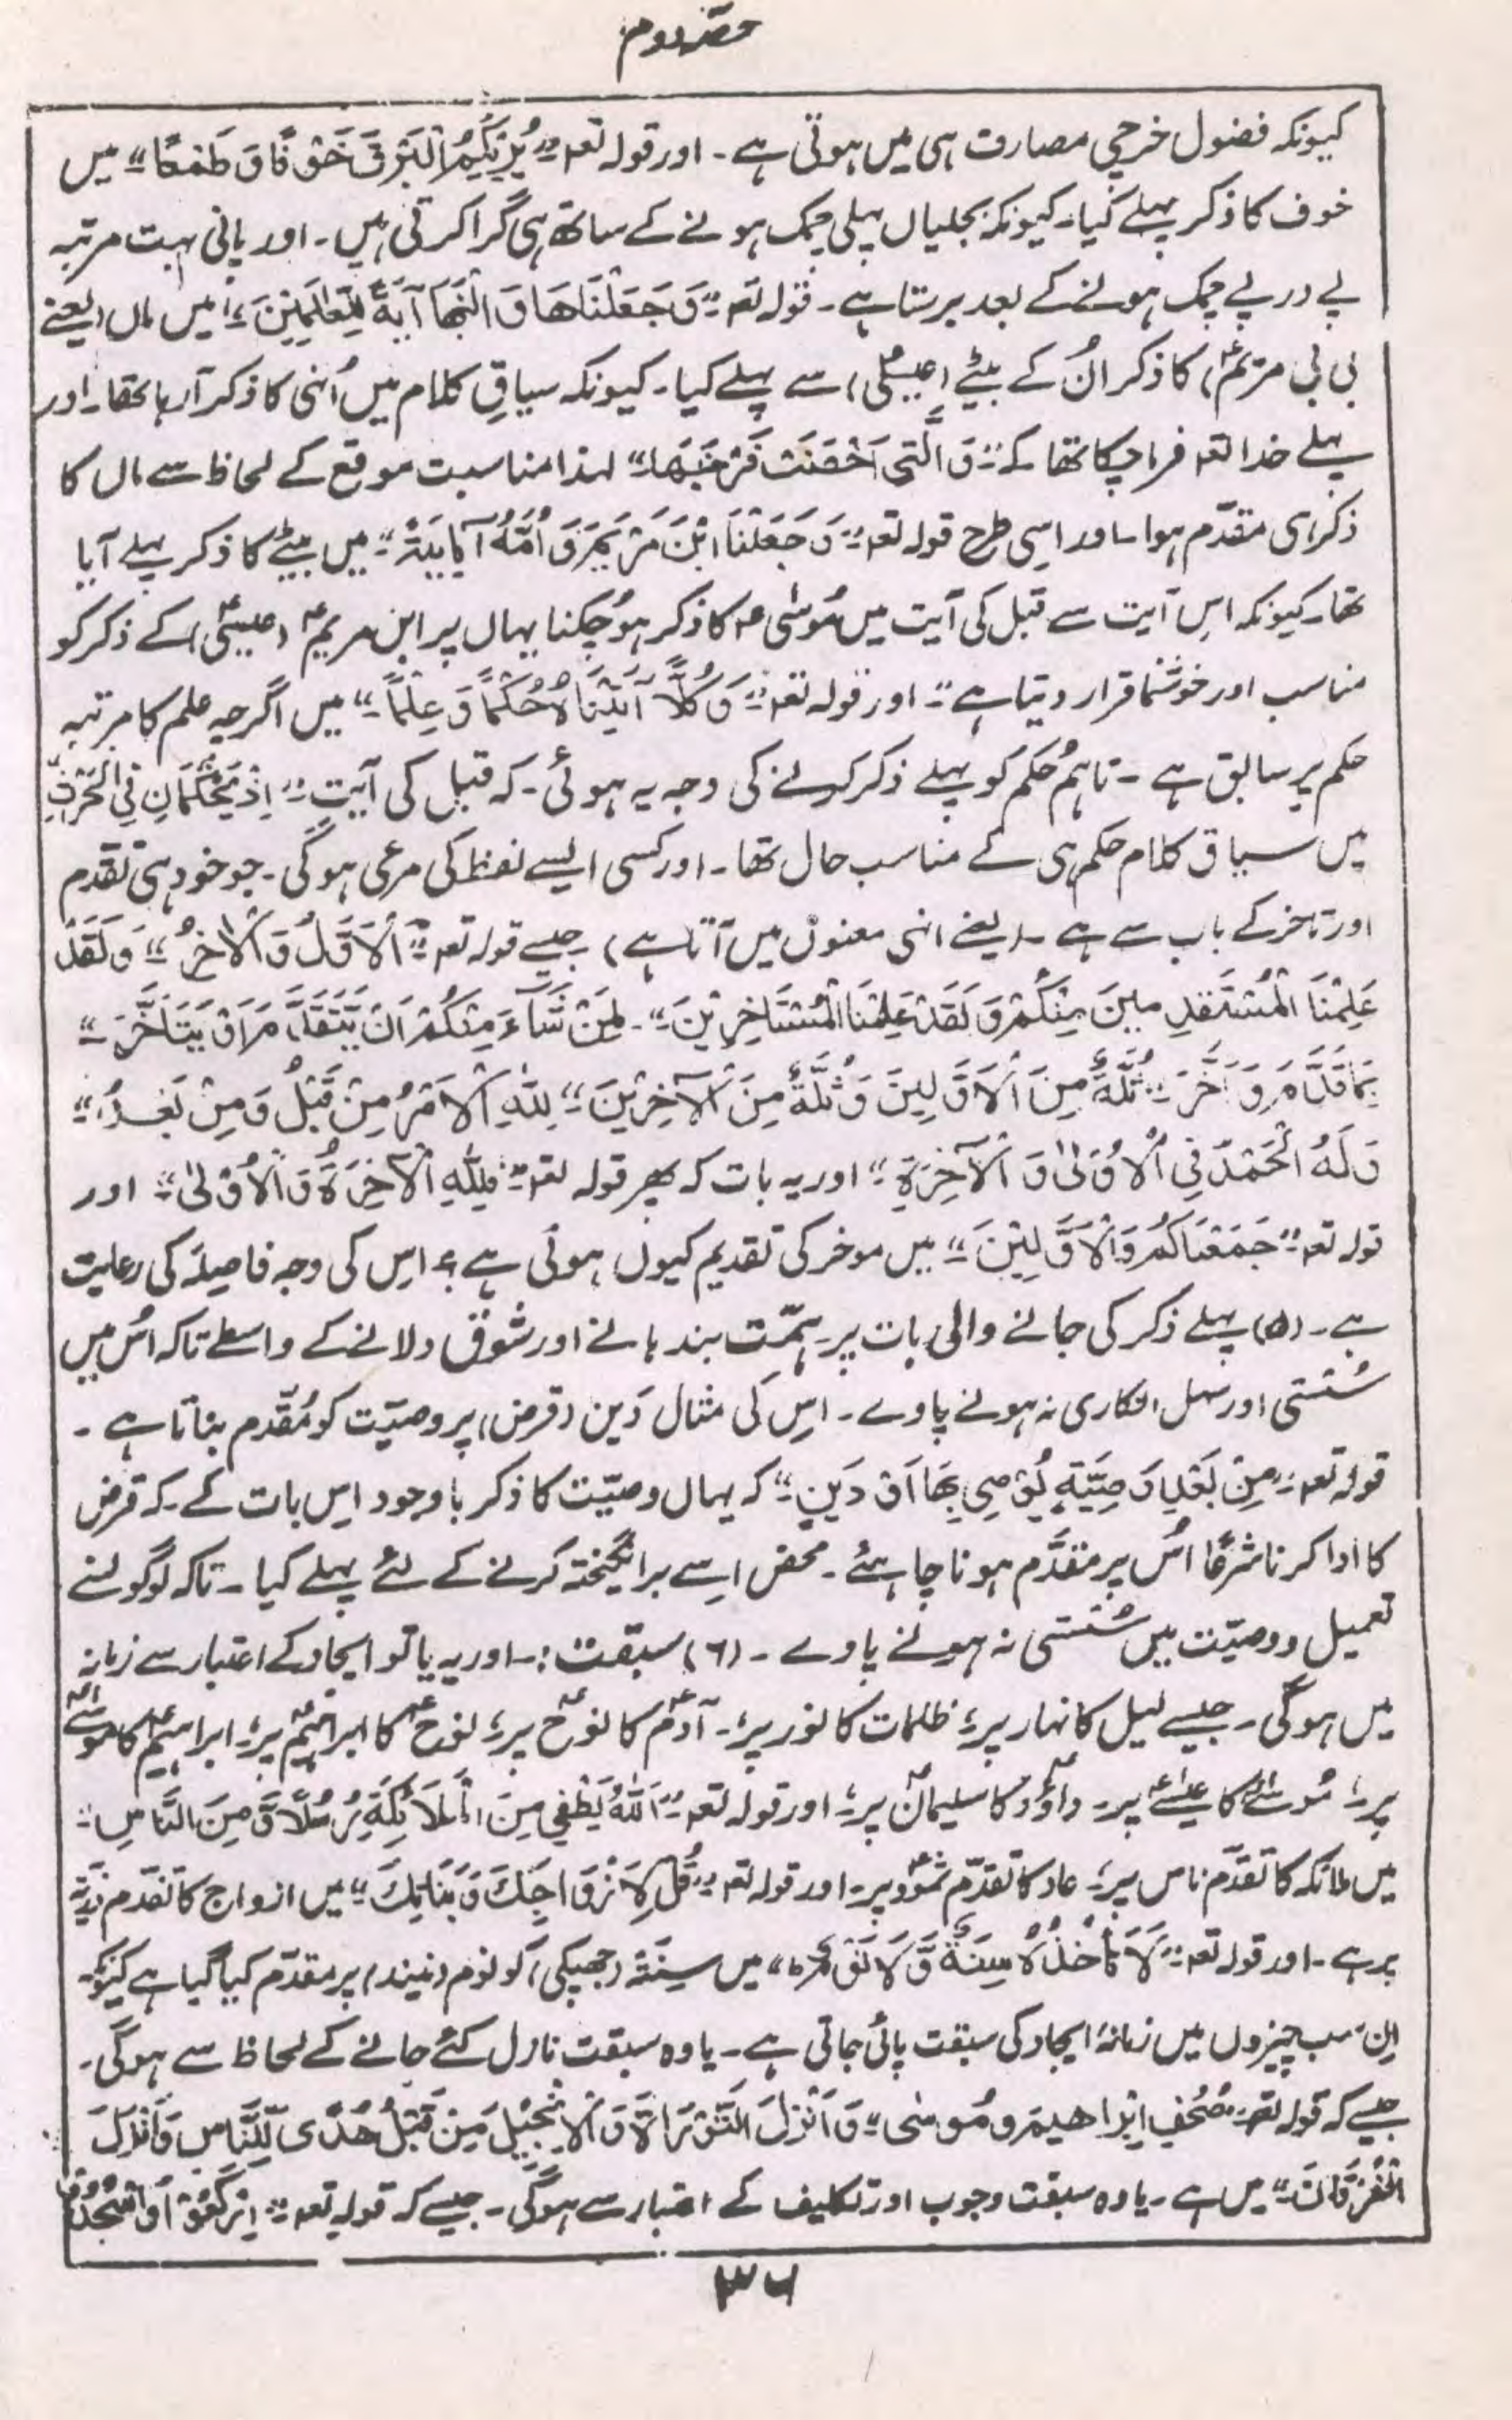 حصہ دوم
کیونکہ فضول خرچی مصارف ہی میں ہوتی ہے۔ اور قولہ تعہ ”یُرِیْکُمُ الْبَرْقَ خَوْفًا وَ طَمَعًا“ میں
خوف کا ذکر پہلے کیا۔ کیونکہ بجلیاں پہلی چمک ہونے کے ساتھ ہی گرا کرتی ہیں۔ اور پانی بہت مرتبہ
پے در پے چمک ہونے کے بعد برستا ہے۔ قولہ تعہ ”وَ جَعَلْنَاهَا وَ ابْنَهَا آیَةً لِلْعَالَمِیْنَ“ میں ماں (یعنے
بی بی مریمؑ) کا ذکر اُن کے بیٹے (عیسٰیؑ) سے پہلے کیا۔ کیونکہ سیاقِ کلام میں اُنہی کا ذکر آ رہا تھا۔ اور
پہلے خدا تعہ فرما چکا تھا کہ ”وَ الَّتِیْ اَحْصَنَتْ فَرْجَهَا“ لہذا مناسبت موقع کے لحاظ سے ماں کا
ذکر ہی مقدّم ہوا۔ اور اسی طرح قولہ تعہ ”وَ جَعَلْنَا ابْنَ مَرْیَمَ وَ اُمَّهٗ آیَةً“ میں بیٹے کا ذکر پہلے آیا
تھا۔ کیونکہ اس آیت سے قبل کی آیت میں مُوسٰی ؑ کا ذکر ہو چکنا یہاں پر ابن مریمؑ (عیسٰیؑ) کے ذکر کو
مناسب اور خوشنما قرار دیتا ہے“۔ اور قولہ تعہ ”وَ کُلًّا آتَیْنَاهُ حُکْمًا وَ عِلْمًا“ میں اگرچہ علم کا مرتبہ
حکم پر سابق ہے۔ تاہم حُکم کو پہلے ذکر کرنے کی وجہ یہ ہوئی۔ کہ قبل کی آیت ”اِذْ یَحْکُمَانِ فِی الْحَرْثِ“
میں سیاق کلام حکم ہی کے مناسب حال تھا۔ اور کسی ایسے لفظ کی مرعی ہوگی۔ جو خود ہی تقدم
اور تاخر کے باب سے ہے۔ (یعنے انہی معنوں میں آتا ہے) جیسے قولہ تعہ ”اَلْاَوَّلُ وَ الْاٰخِرُ“ ”وَ لَقَدْ
عَلِمْنَا الْمُسْتَقْدِمِیْنَ مِنْکُمْ وَ لَقَدْ عَلِمْنَا الْمُسْتَاخِرِیْنَ“۔ لِمَنْ شَآءَ مِنْکُمْ اَنْ یَّتَقَدَّمَ اَوْ یَتَاَخَّرَ“
بِمَا قَدَّمَ وَ اَخَّرَ“ ثُلَّةٌ مِنَ الْاَوَّلِیْنَ وَ ثُلَّةٌ مِنَ الْآخِرِیْنَ“ لِلّٰهِ الْاَمْرُ مِنْ قَبْلُ وَ مِنْ بَعْدُ“
وَ لَهُ الْحَمْدُ فِی الْاُوْلٰی وَ الْآخِرَةِ“ اور یہ بات کہ پھر قولہ تعہ ”فَلِلّٰهِ الْآخِرَةُ وَ الْاُوْلٰی“ اور
قولہ تعہ ”جَمَعْنَاکُمْ وَ الْاَوَّلِیْنَ“ میں موخر کی تقدیم کیوں ہوئی ہے؟ اس کی وجہ فاصلہ کی رعایت
ہے۔ (۵) پہلے ذکر کی جانے والی بات پر ہمّت بندہانے اور شوق دلانے کے واسطے تاکہ اُس میں
سُستی اور سہل انکاری نہ ہونے پاوے۔ اِس کی مثال دَین (قرض) پر وصیّت کو مُقدّم بناتا ہے۔
قولہ تعہ ”مِنْ بَعْدِ وَصِیَّةٍ یُوْصِی بِهَا اَوْ دَیْنٍ“ کہ یہاں وصیّت کا ذکر باوجود اِس بات کے۔ کہ قرض
کا ادا کرنا شرعًا اُس پر مقدّم ہونا چاہئے۔ محض اِسے برانگیختہ کرنے کے لئے پہلے کیا۔ تاکہ لوگو لنے
تعمیل ووصیّت میں سُستی نہ ہونے پاوے۔ (۶) سبقت:۔ اور یہ یا تو ایجاد کے اعتبار سے زمانہ
میں ہوگی۔ جیسے لیل کا نہار پر، ظلمات کا نور پر،۔ آدمؑ کا نوحؑ پر، نوحؑ کا ابراہیمؑ پر، ابراہیمؑ کا موسٰےؑ
پر، مُوسٰےؑ کا عیسٰےؑ پر۔ داؤدؑ کا سلیمانؑ پر، اور قولہ تعہ ”اَللّٰهُ یَصْطَفِی مِنَ الْمَلَائِکَةِ رُسُلًا وَّ مِنَ النَّاسِ“
میں ملائکہ کا تقدّم ناس پر، عاد کا تقدّم ثمود پر۔ اور قولہ تعہ ”قُلْ لِاَزْوَاجِکَ وَ بَنَاتِکَ“ میں ازواج کا تقدم ذریّۃ
پر ہے۔ اور قولہ تعہ ”لَا تَاْخُذُهٗ سِنَةٌ وَّ لَا نَوْمٌ“ میں سِنَۃٌ (جھپکی) کو نوم (نیند) پر مقدّم کیا گیا ہے کیونکہ
اِن سب چیزوں میں زمانۂ ایجاد کی سبقت پائی جاتی ہے۔ یا وہ سبقت نازل کئے جانے کے لحاظ سے ہوگی۔
جیسے کہ قولہ تعہ ”صُحُفِ اِبْرَاهِیْمَ وَ مُوْسٰی“ وَ اَنْزَلَ التَّوْرَاةَ وَ الْاِنْجِیْلَ مِنْ قَبْلُ هُدًی لِّلنَّاسِ وَ اَنْزَلَ
الْفُرْقَانَ“ میں ہے۔ یا وہ سبقت وجوب اور تکلیف کے اعتبار سے ہوگی۔ جیسے کہ قولہ تعہ ”اِرْکَعُوْا وَ اسْجُدُوْا
۳۶